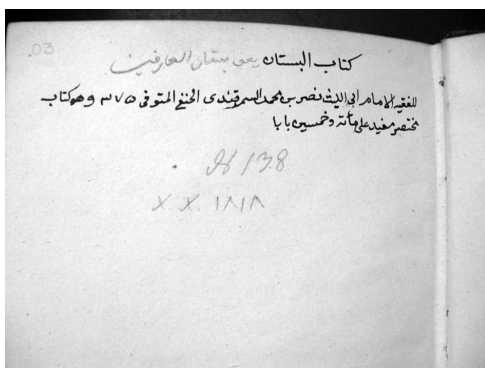 03
كتاب البستان يعني بستان العارفين
للفقيه الامام ابي الليث نصر بن محمد السمرقندي الحنفي المتوفى ٣٧٥ وهو كتاب
مختصر مفيد على مأئة وخمسين بابا
138
X X. ١٨١٨